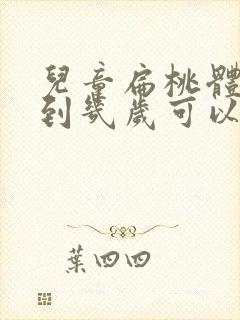 兒童扁桃體
到幾歲可以
葉四四